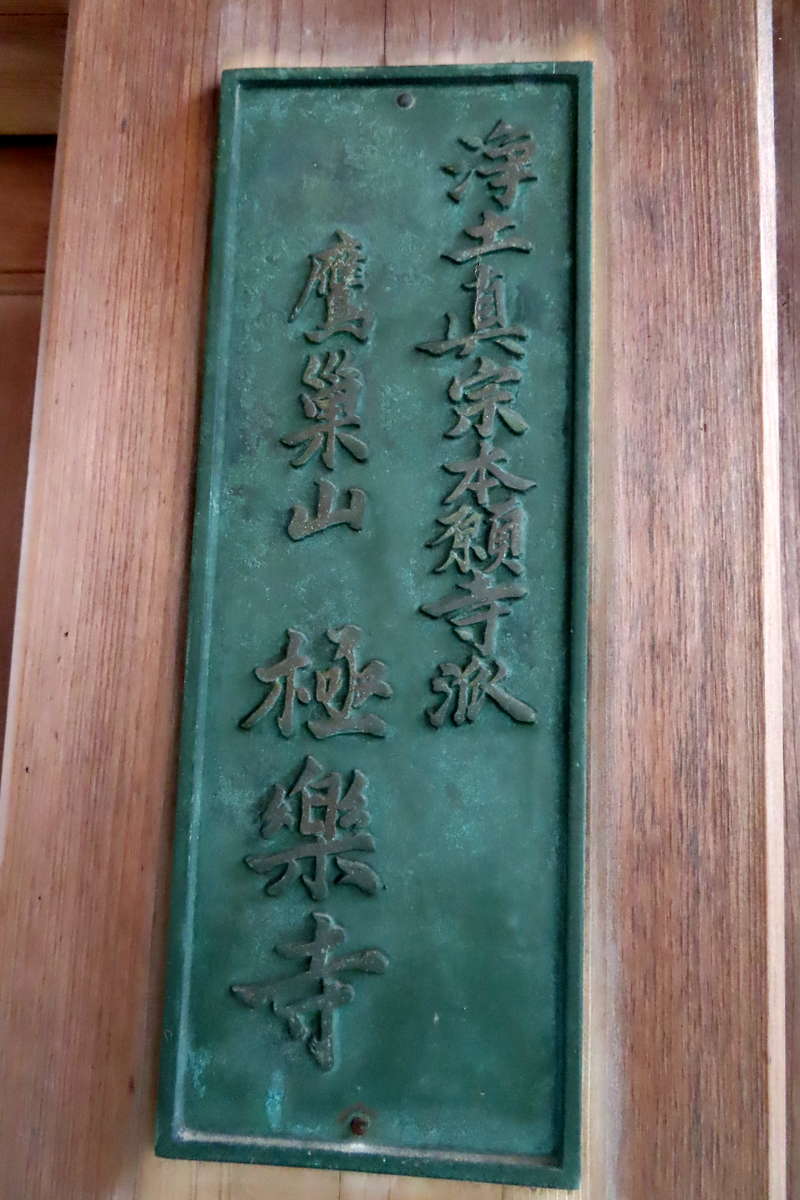 浄土真宗本願寺派
鷹巣山 極樂寺